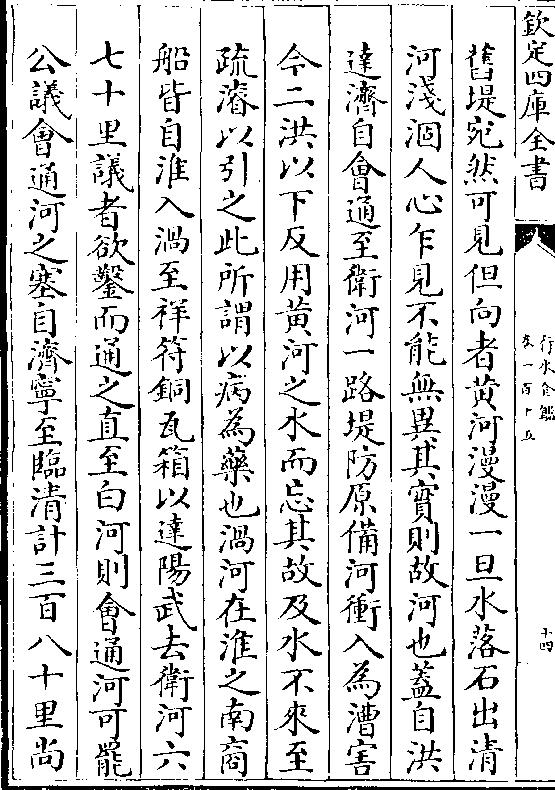 欽定四庫全書
行水金鑑
卷一百十五
十四
舊堤宛然可見但向者黄河漫漫一旦水落石出清
河淺涸人心乍見不能無異其實則故河也蓋自洪
達濟自會通至衛河一路堤防原備河衝入為漕害
今二洪以下反用黄河之水而忘其故及水不來至
疏濬以引之此所謂以病為藥也渦河在淮之南商
船皆自淮入渦至祥符銅瓦箱以達陽武去衛河六
七十里議者欲鑿而通之直至白河則會通河可罷
公議會通河之塞自濟寧至臨清計三百八十里尚